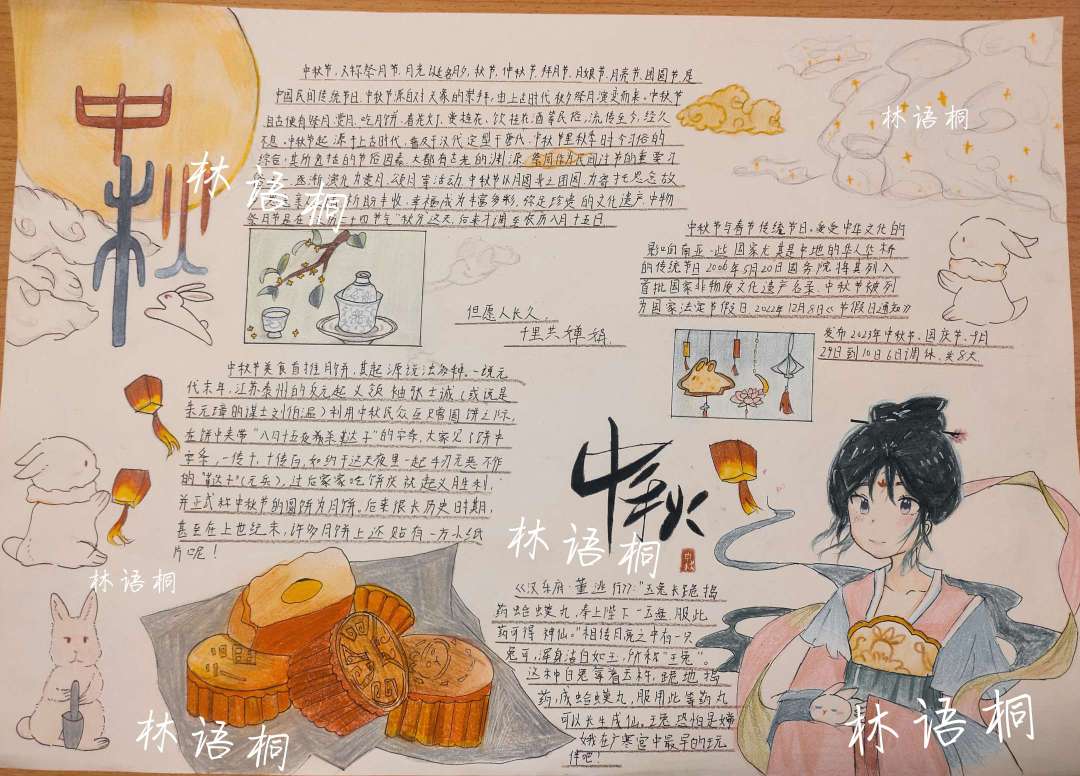 中秋
中秋节,又称祭月节、月光诞、月夕、秋节、仲秋节、拜月节、月娘节、月亮节、团圆节,是
中国民间传统节日。中秋节源自对天象的崇拜,由上古时代秋夕祭月演变而来。中秋节
自古便有祭月、赏月、吃月饼、看花灯、赏桂花、饮桂花酒等民俗,流传至今,经久
不息。中秋节起源于上古时代,普及于汉代,定型于唐代。中秋节是秋季时令习俗的
综合,其所包括的节俗因素,大都有古老的渊源。祭月作为民间过节的重要
逐渐演化为赏月、颂月等活动。中秋节以月圆寓意团圆,为寄托思念故
丰收、幸福,成为丰富多彩、弥足珍贵的文化遗产。
祭月节是 二十四节气“秋分”这天,后来才调至农历八月十五日
中秋节与春节 传统节日。受中华文化的
影响 南亚一些国家尤其是当地的华人华侨
的传统节日。2006年5月20日国务院将其列入
首批国家非物质文化遗产名录。中秋节被列
为国家法定节假日。2022年12月8日《节假日通知》
发布2023年中秋节、国庆节:9月
29日到10月6日调休,共8天
但愿人长久,
千里共婵娟。
中秋节美食首推月饼,其起源说法多种。一说元
代末年,江苏泰州的反元起义领袖张士诚(或说是
朱元璋的谋士刘伯温)利用中秋民众互赠圆饼之际,
在饼中夹带“八月十五夜杀鞑子”的字条,大家见了饼中
字条,一传十,十传百,如约于这天夜里一起手刃无恶不作
的“鞑子”(元兵),过后家家吃饼庆祝起义胜利,
并正式称中秋节的圆饼为月饼。后来很长历史时期,
甚至在上世纪末,许多月饼上还贴有一方小纸
片呢!
中秋
中秋
《汉乐府·董逃行》:“玉兔长跪捣
药蛤蟆丸,奉上陛下一玉盘,服此
药可得神仙。”相传月亮之中有一只
兔可,浑身洁白如玉,所称“玉兔”。
这种白兔拿着玉杵,跪地捣
药,成蛤蟆丸,服用此等药丸
可以长生成仙。玉兔恐怕是嫦
娥在广寒宫中最早的玩
伴吧!
林语桐
林语桐
林语桐
林语桐
林语桐
林语桐